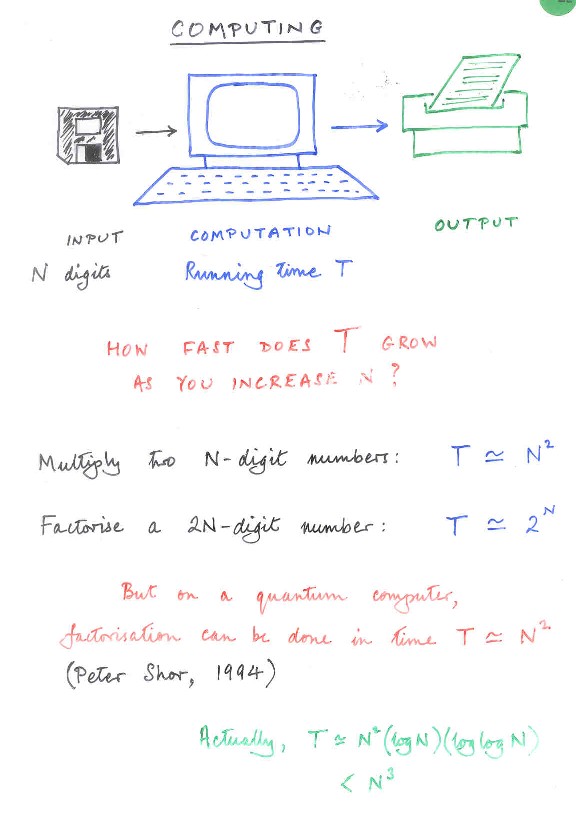 COMPUTING
INPUT
COMPUTATION
OUTPUT
N digits
Running time T
HOW FAST DOES T GROW
AS YOU INCREASE N ?
Multiply two N-digit numbers: T ≃ N²
Factorise a 2N-digit number: T ≃ 2ᴺ
But on a quantum computer,
factorisation can be done in time T ≃ N²
(Peter Shor, 1994)
Actually, T ≃ N²(log N)(log log N)
< N³